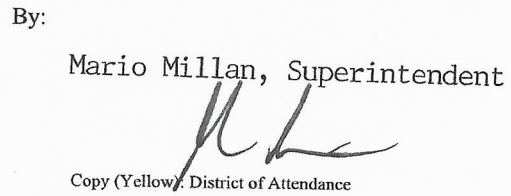 By:
Mario Millan, Superintendent
Copy (Yellow): District of Attendance